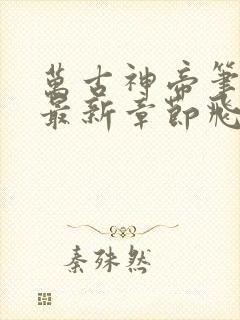 萬古神帝筆
最新章節飛
秦殊然